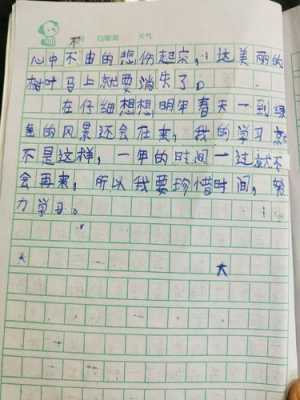 不 日期 天气
心中不由的悲伤起来，这美丽的
树叶马上就要消失了。
在仔细想想明年春天一到绿
色的风景还会在来，我的学习就
不是这样，一年的时间一过就不
会再来，所以我要珍惜时间，努
力学习。
大 大